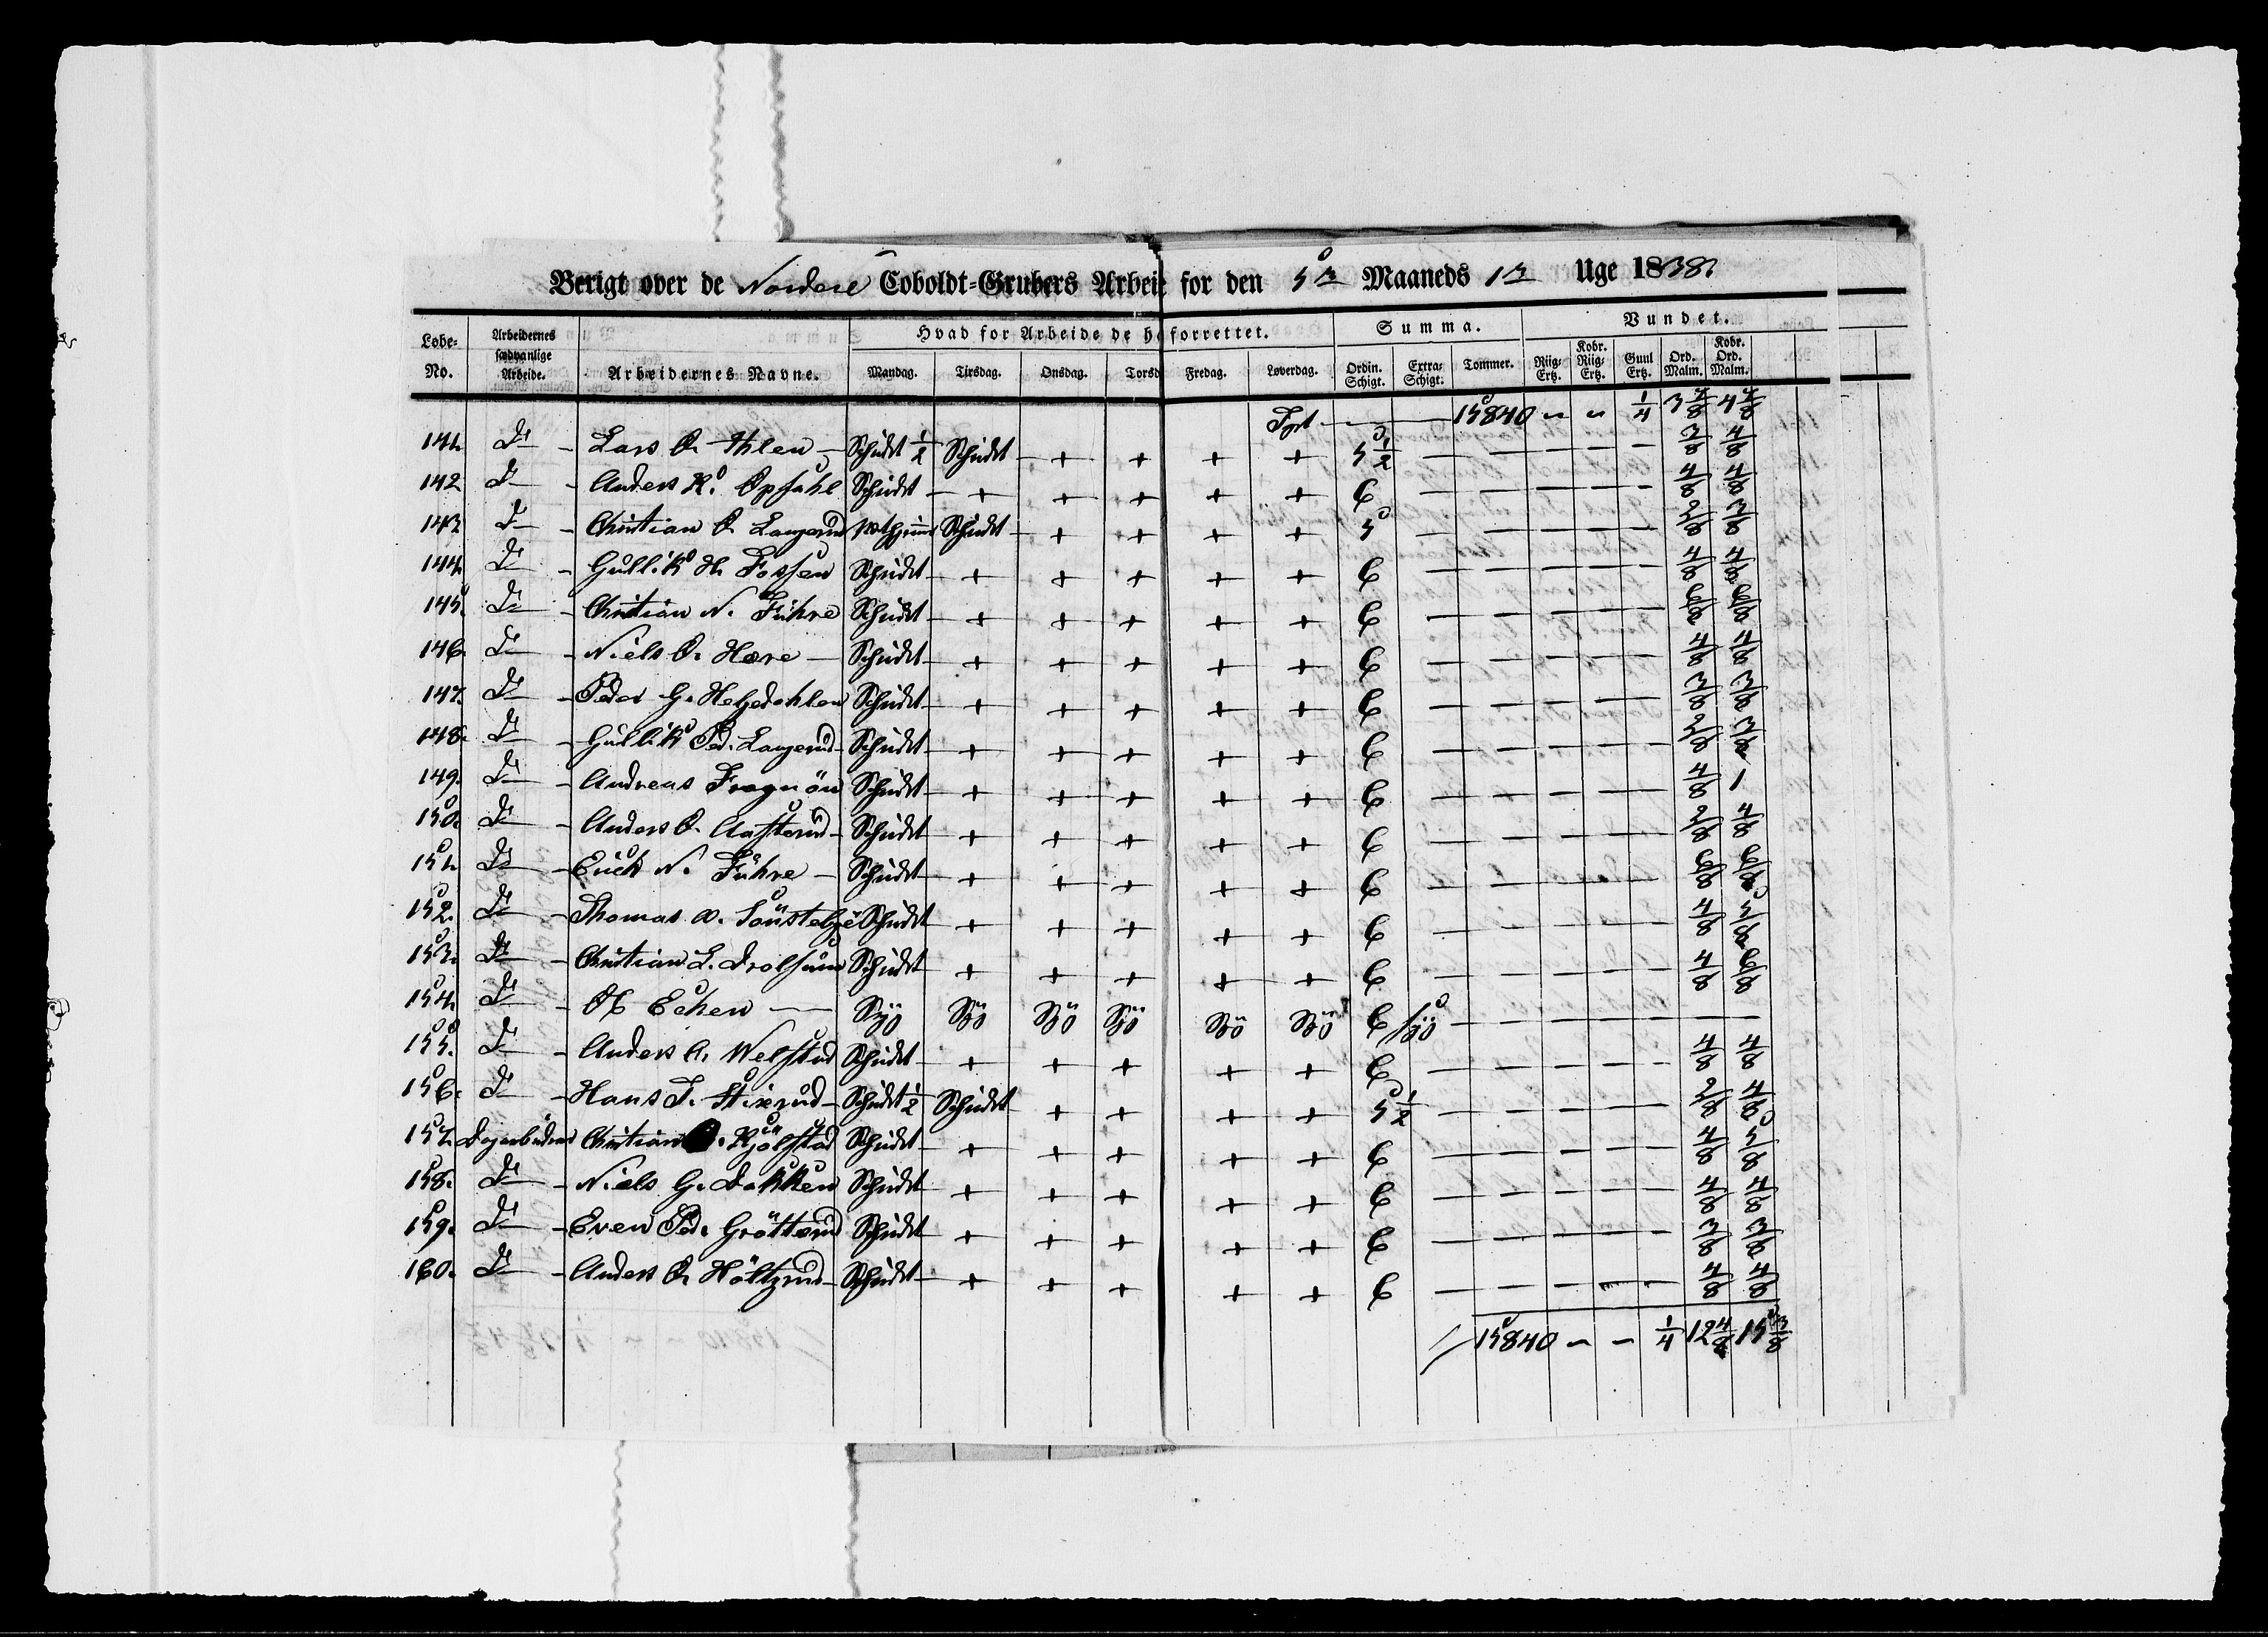 Berigt over de Nordere Coboldt-Grubers Arbei for den 5te Maaneds 1te Uge 1838.
Løbe-No. Arbeidernes sædvanlige Arbeide. Arbeidernes Navne. Hvad for Arbeide de ha forrettet. Summa. Vundet.
Mandag. Tirsdag. Onsdag. Torsd Fredag. Løverdag. Ordin. Schigt. Extra-Schigt. Tommer. Riig-Ertz. Kobr. Riig-Ertz. Guul Ertz. Ord. Malm. Kobr. Ord. Malm.
Tprt — 15840 " " 1/4 3 4/8
141. Do — Lars O. Ihlen — Scheidt 1/2 Scheidt + + + + 5 1/2 — — — — — — 3/8 4/8
142 Do — Anders K. Opsahl Scheidt + + + + + 6 — — — — — — 4/8 4/8
143 Do — Christian O. Langerud Scheidt + + + + 5 — — — — — — 2/8 3/8
144. Do — Gullik H. Fossen Scheidt + + + + + 6 — — — — — — 4/8 4/8
145. Do — Christian N. Fuhre Scheidt + + + + + 6 — — — — — — 6/8 6/8
146. Do — Niels O. Hære — Scheidt + + + + + 6 — — — — — — 4/8 4/8
147. Do — Peder G. Helgedahlen Scheidt + + + + + 6 — — — — — — 3/8 3/8
148. Do — Gullik Ped. Langerud Scheidt + + + + + 6 — — — — — — 2/8 3/8
149. Do — Andreas Fragnön Scheidt + + + + + 6 — — — — — — 4/8 1
150. Do — Anders O. Aasterud Scheidt + + + + + 6 — — — — — — 2/8 4/8
151. Do — Erick N. Fuhre — Scheidt + + + + + 6 — — — — — — 6/8 6/8
152. Do — Thomas Scheidt + + + + + 6 — — — — — — 4/8 5/8
153. Do — Christian L. Drolsum Scheidt + + + + + 6 — — — — — — 4/8 6/8
154. Do — Ol Echen — Syg Syg Syg Syg Syg Syg 6 Syg — — — — —
155. Do — Anders A. Welstad Scheidt + + + + + 6 — — — — — — 4/8 4/8
156. Do — Hans J. Stixrud Scheidt 1/2 Scheidt + + + + 5 1/2 — — — — — — 2/8 4/8
157. Dagarbeider Christian O. Kjölstad Scheidt + + + + + 6 — — — — — — 4/8 5/8
158. Do — Niels G. Dakken Scheidt + + + + + 6 — — — — — — 4/8 4/8
159. Do — Even Ped. Gröttrud Scheidt + + + + + 6 — — — — — — 3/8 3/8
160. Do — Anders O. Höltzrud Scheidt + + + + + 6 — — — — — — 4/8 4/8
15840 — — 1/4 12 4/8 15 3/8